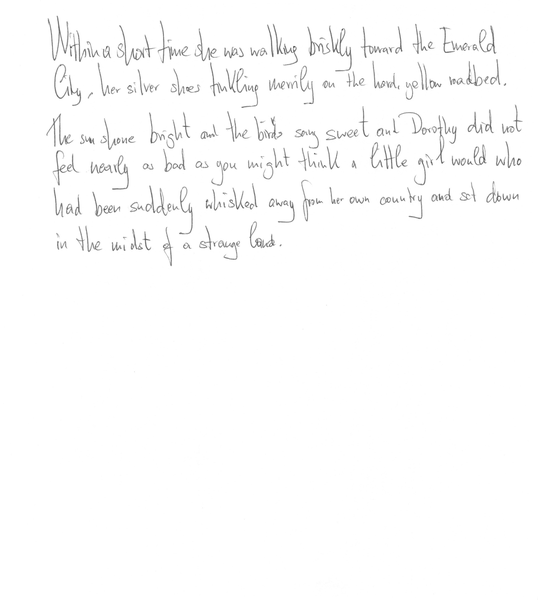 Within a short time she was walking briskly toward the Emerald
City, her silver shoes tinkling merrily on the hard, yellow roadbed.
The sun shone bright and the birds sang sweet and Dorothy did not
feel nearly as bad as you might think a little girl would who
had been suddenly whisked away from her own country and set down
in the midst of a strange land.